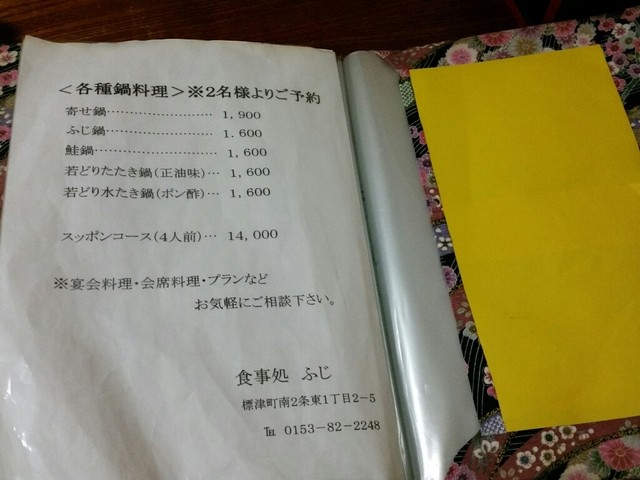 ＜各種鍋料理＞※2名様よりご予約
寄せ鍋……………………… 1,900
ふじ鍋……………………… 1.600
鮭鍋………………………… 1,600
若どりたたき鍋(正油味)… 1,600
若どり水たき鍋(ポン酢)… 1,600
スッポンコース(4人前)… 14,000
※宴会料理・会席料理・プランなど
お気軽にご相談下さい。
食事処 ふじ
標津町南2条東1丁目2-5
℡ 0153-82-2248